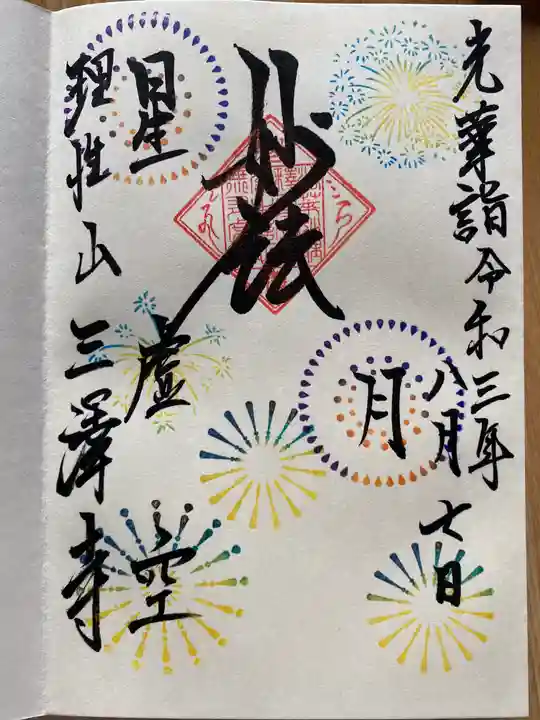 光華詣令和三年
八月七日
月
妙法
星
虚
空
理性山三澤寺